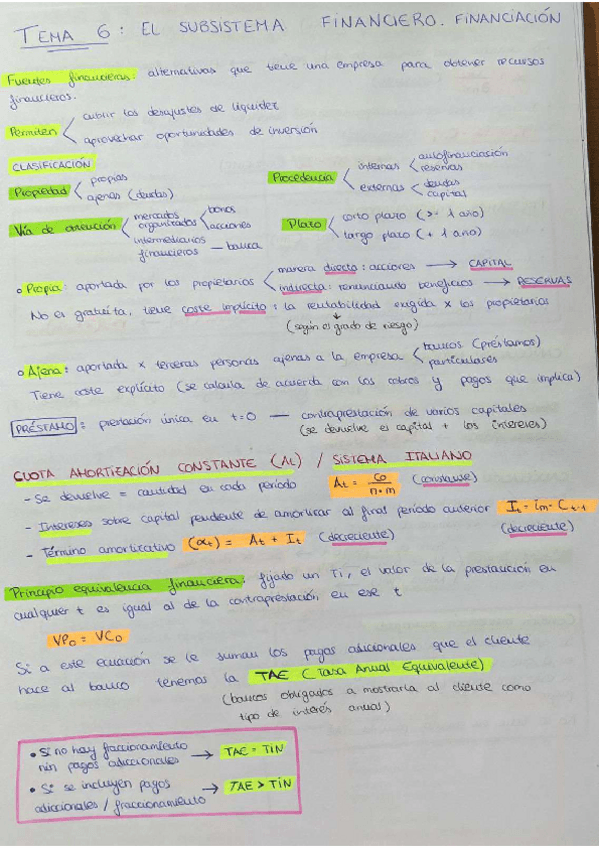 TEMA 6: EL SUBSISTEMA FINANCIERO. FINANCIACIÓN
Fuentes financieras: alternativas que tiene una empresa para obtener recursos
financieros.
Permiten
cubrir los desajustes de liquidez
aprovechar oportunidades de inversión
CLASIFICACIÓN
Propiedad
propias
ajenas (deudas)
Procedencia
internas
autofinanciación
reservas
externas
deudas
capital
Vía de obtención
mercados
organizados
bonos
acciones
intermediarios
financieros — banca
Plazo
corto plazo (>- 1 año)
largo plazo (+ 1 año)
Propia: aportada por los propietarios
manera directa: acciones → CAPITAL
indirecta: renunciando beneficios → RESERVAS
No es gratuita, tiene coste implícito: la rentabilidad exigida x los propietarios
(según el grado de riesgo)
Ajena: aportada x terceras personas ajenas a la empresa
bancos (préstamos)
particulares
Tiene coste explícito (se calcula de acuerdo con los cobros y pagos que implica)
PRÉSTAMO: prestación única en t=0 — contraprestación de varios capitales
(se devuelve el capital + los intereses)
CUOTA AMORTIZACIÓN CONSTANTE (AL) / SISTEMA ITALIANO
- Se devuelve = cantidad en cada periodo At = Co / n·m (constante)
- Intereses sobre capital pendiente de amortizar al final periodo anterior It = im · Ct-1
(decreciente)
- Término amortizativo (αt) = At + It (decreciente)
Principio equivalencia financiera: fijado un Ti, el valor de la prestación en
cualquier t es igual al de la contraprestación en ese t
VPo = VCo
Si a este ecuación se le suman los pagos adicionales que el cliente
hace al banco tenemos la TAE (Tasa Anual Equivalente)
(bancos obligados a mostrarla al cliente como
tipo de interés anual)
• Si no hay fraccionamiento
nin pagos adiccionales → TAE = TIN
• Si se incluyen pagos
adiccionales / fraccionamiento → TAE > TIN